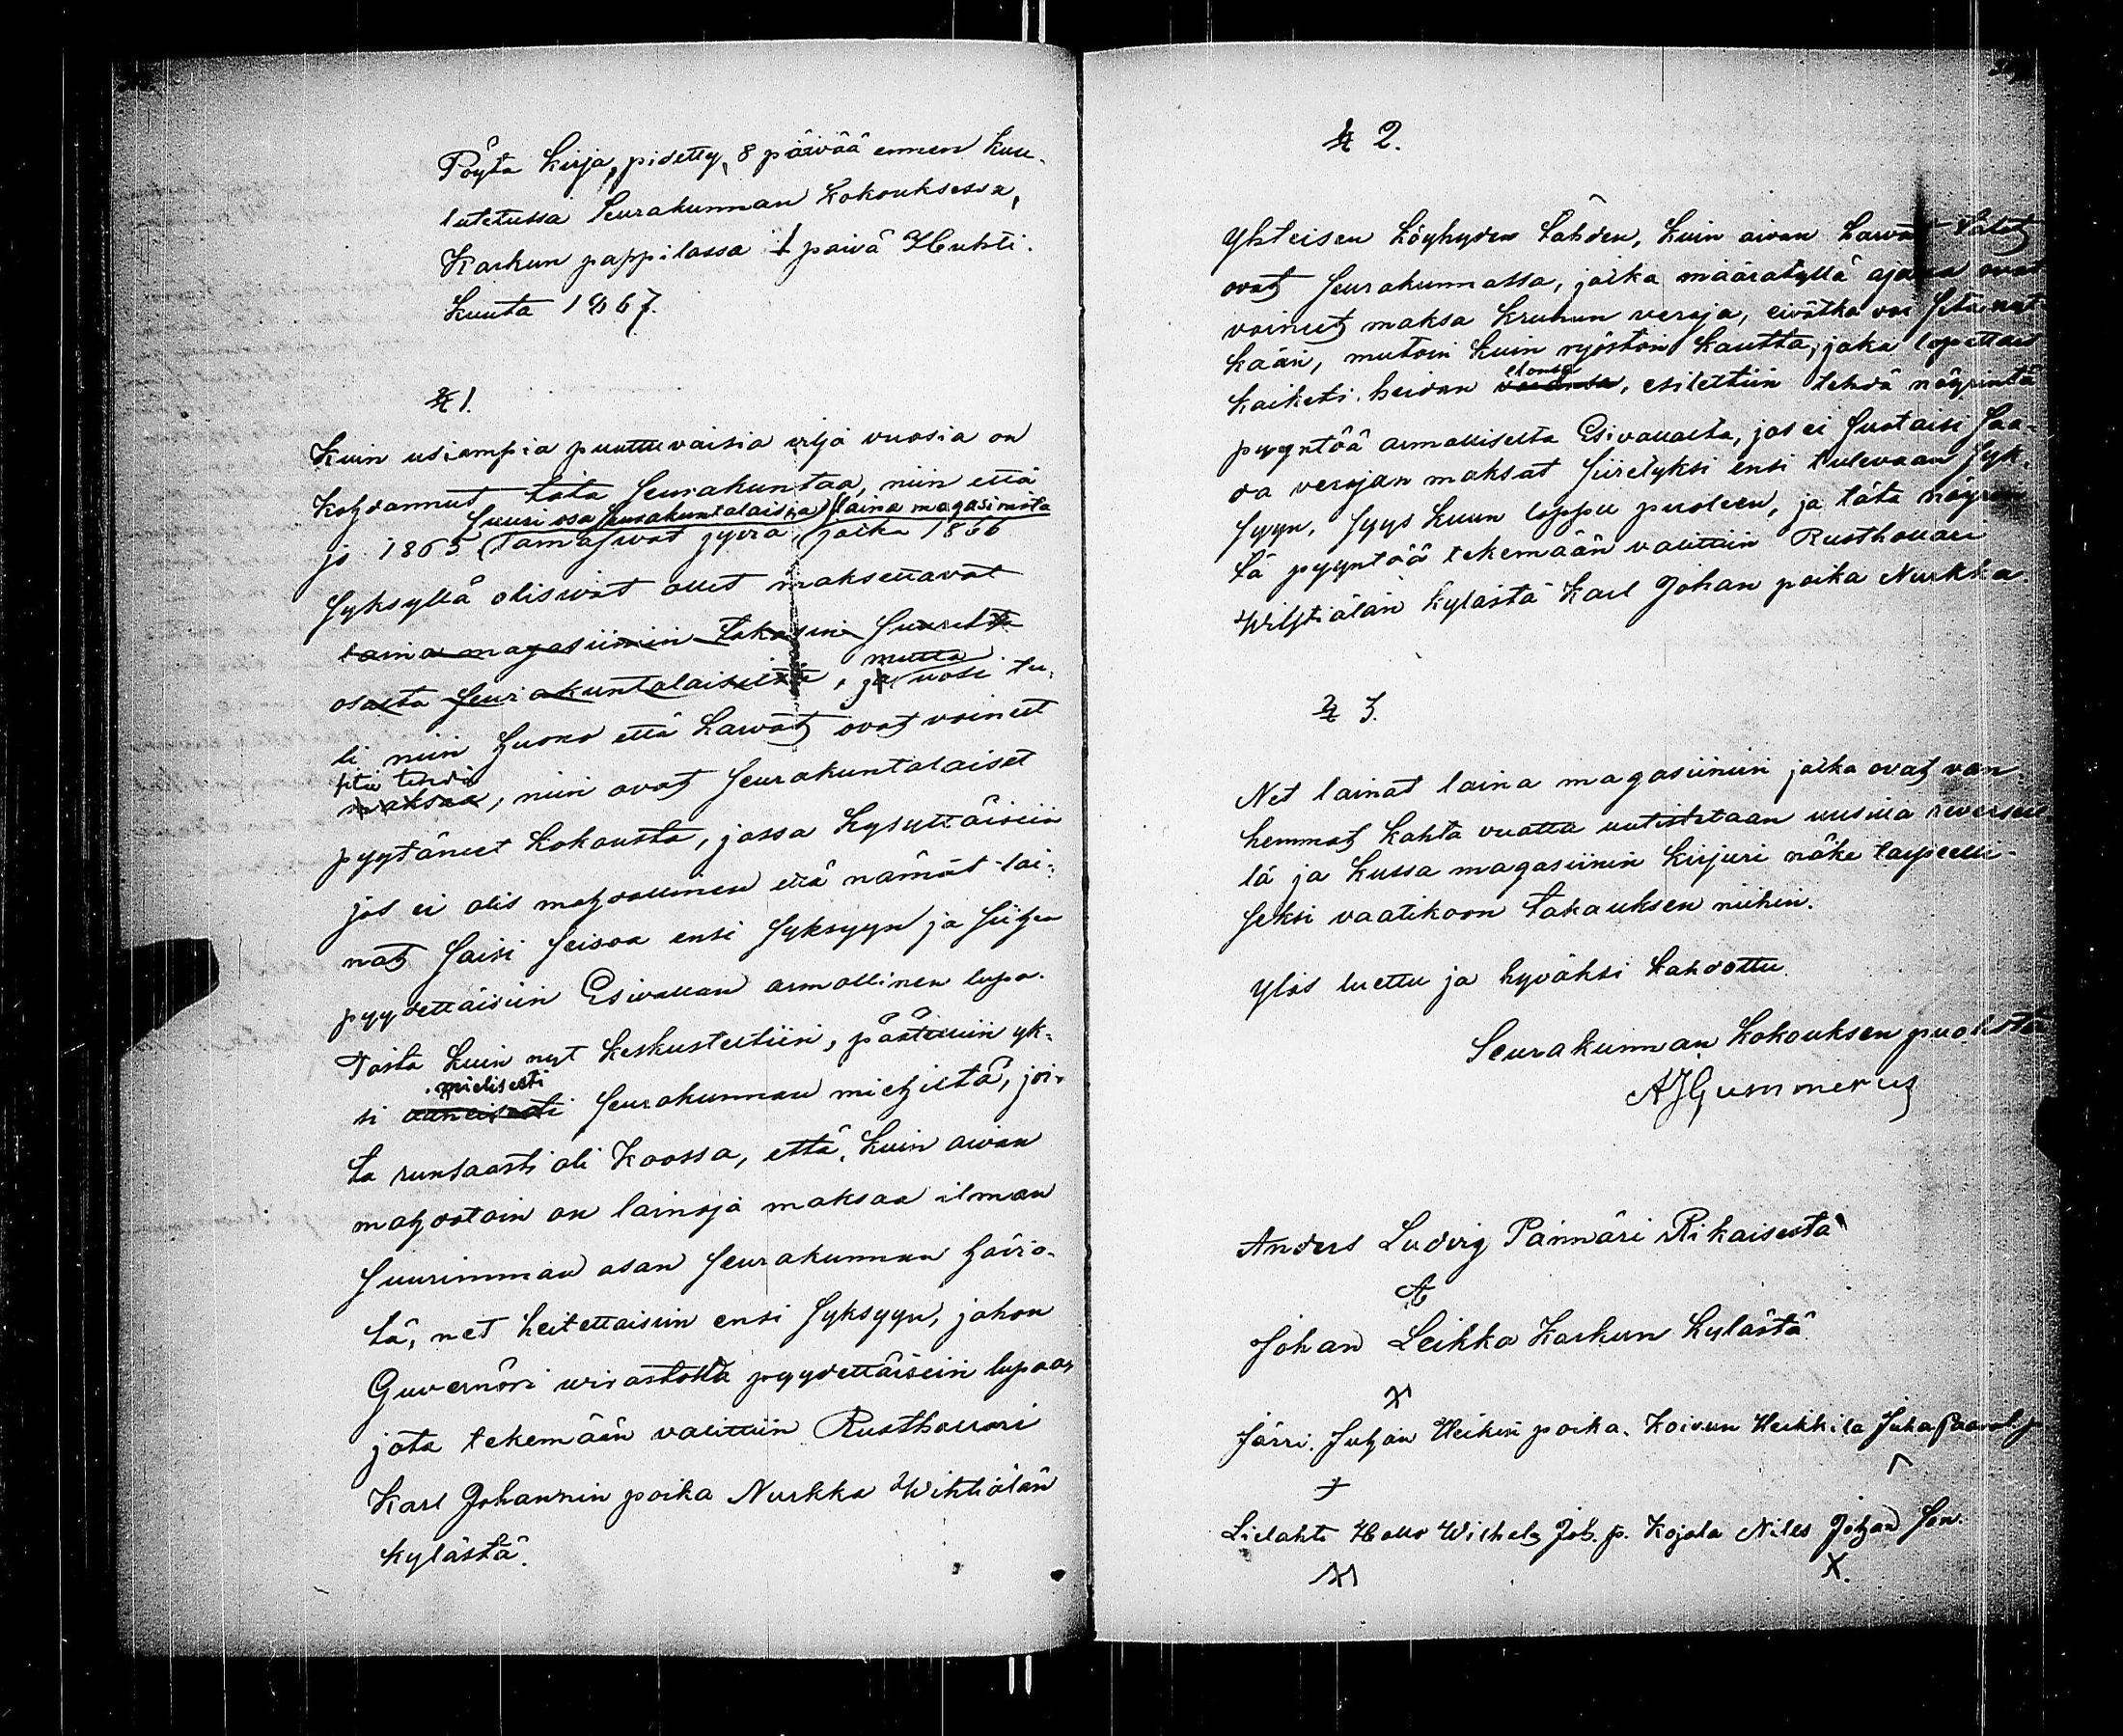 Pöyta Kirja, pidetty, 8 päivää ennen kuu-
lutetussa Seurakunnan Kokouksessa,
Karkun pappilassa 1 päivä Huhti-
Kuuta 1867.
§ 1.
Kuin usiampia puuttuvaisia vilja vuosia on
Kohdannut tätä Seurakuntaa, niin että
Suuri osa Seurakuntalaisia laina magasinista
jo 1865 jyviä joita 1866
Syksyllä olisivat ollet maksettavat
laina magasiiniin Takasin Suurelta
osalta Seurakuntalaisilta, ja mutta vosi tu-
li niin huono että harvat ovat voineet
sitä tehdä
maksaa, niin ovat Seurakuntalaiset
pyytäneet Kokousta, jossa kysyttäisiin
jos ei olis mahdollinen että nämät lai-
nat saisi seisoa ensi Syksyyn ja siihen
pyydettäisiin Esivallan armollinen lupa.
Tästä Kuin nyt Keskusteltiin, päätettiin yk-
mielisesti
si äänisesti Seurakunnan miehiltä, joi-
ta runsaasti oli Koossa, että, Kuin aivan
mahdotoin on lainoja maksaa ilman
Suurimman osan Seurakunnan häviö-
tä, net heitettäisiin ensi Syksyyn, johon
Guvernöri virastolta pyydettäisiin lupaa,
jota tekemään valittiin Rusthollari
Karl Johannin poika Nurkka Wihtiälän
kylästä.
§ 2.
Yhteisen Köyhyden tähden, Kuin aivan harvat talot
ovat Seurakunnassa, jotka määrätyllä ajalla ovat
voineet maksa Kruunun veroja, eivätkä voi sitä nyt-
kään, mutoin Kuin ryöstön Kautta, joka lopettaa
elonsa
Kaiketi heidän, esitettiin tehdä nöyrintä
pyyntöä armolliselta Esivallalta, jos ei Suotaisi Saa-
da verojan maksat Siiretyksi ensi tulevaan Syk-
syyn, Syys Kuun loppu puoleen, ja tätä nöyrin
tä pyyntöä tekemään valittiin Rusthollari
Wihtiälän kylästä Karl Johan poika Nurkka
§ 3.
Net lainat laina magasiiniin jotka ovat van-
hemmat Kahta vuotta uutistetaan uusilla reversil-
lä ja Kussa magasiinin Kirjuri näke tarpeelli-
seksi vaatikoon takauksen niihin.
Ylös luettu ja hyväksi tahdottu.
Seurakunnan Kokouksen puolesta
A J Gummerus
Anders Ludvig Pännäri Rikaisesta
Johan Leikka Karkun Kylästä
X
Järri. Juhan Heikin poika. Koivun Heikkila Juha
+
Lielahti Wilhelm Joh. p. Kojola Niles Johan
X.